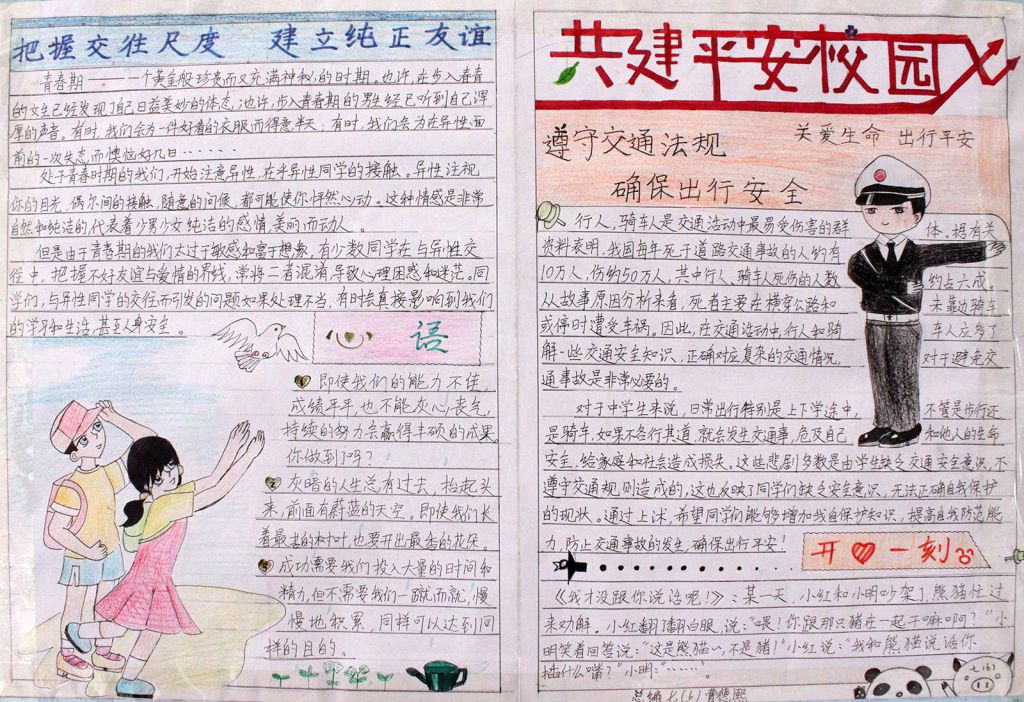 把握交往尺度 建立纯正友谊
青春期——一个黄金般珍贵而又充满神秘的时期。也许,在步入青春
的女生已经发现了自己日益美妙的体态;也许,步入青春期的男生经已听到自己浑
厚的声音。有时,我们会为一件好看的衣服而得意半天,有时,我们会为在异性面
前的一次失态,而懊恼好几日······
处于青春时期的我们,开始注意异性,在乎异性同学的接触。异性注视
你的目光,偶尔间的接触,随意的问候,都可能使你怦然心动。这种情感是非常
自然和纯洁的,代表着少男少女纯洁的感情,美丽而动人。
但是由于青春期的我们太过于敏感和富于想象,有少数同学在与异性交
往中,把握不好友谊与爱情的界线,常将二者混淆,导致心理困惑和迷茫。同
学们,与异性同学的交往而引发的问题如果处理不当,有时会直接影响到我们
的学习和生活,甚至人身安全。
语
1 即使我们的能力不佳,
成绩平平,也不能灰心丧气,
持续的努力会赢得丰硕的成果,
你做到了吗?
2 灰暗的人生总有过去,抬起头
来,前面有蔚蓝的天空。即使我们长
着最老的树叶,也要开出最香的花朵。
3 成功需要我们投入大量的时间和
精力,但不需要我们一蹴而就,慢
慢地积累,同样可以达到同
样的目的。
共建平安校园
遵守交通法规 关爱生命 出行平安
确保出行安全
行人,骑车人是交通活动中最易受伤害的群体。据有关
资料表明,我国每年死于道路交通事故的人约有
10万人,伤约50万人,其中行人、骑车人死伤的人数约占六成。
从故事原因分析来看,死者主要在横穿公路和未靠边骑车
或停时遭受车祸。因此,在交通活动中,行人和骑车人应多了
解一些交通安全知识,正确对应复杂的交通情况,对于避免交
通事故是非常必要的。
对于中学生来说,日常出行特别是上下学途中,不管是步行还
是骑车,如果不各行其道,就会发生交通事,危及自己和他人的生命
安全,给家庭和社会造成损失。这些悲剧多数是由学生缺乏交通安全意识,不
遵守交通规则造成的,这也反映了同学们缺乏安全意识,无法正确自我保护
的现状。通过上述,希望同学们能够增加我自保护知识,提高自我防范能
力,防止交通事故的发生,确保出行平安!
开心一刻
《我才没跟你说话呢!》:某一天,小红和小明吵架了,熊猫忙过
来劝解。小红翻了翻白眼,说:“喂!你跟那只猪在一起干嘛啊?”小
明笑着回答说:“这是熊猫~,不是猪!”小红说:“我和熊猫说话你
插什么嘴?”小明:“······’
七(6)
总编 七(6) 曹德熙